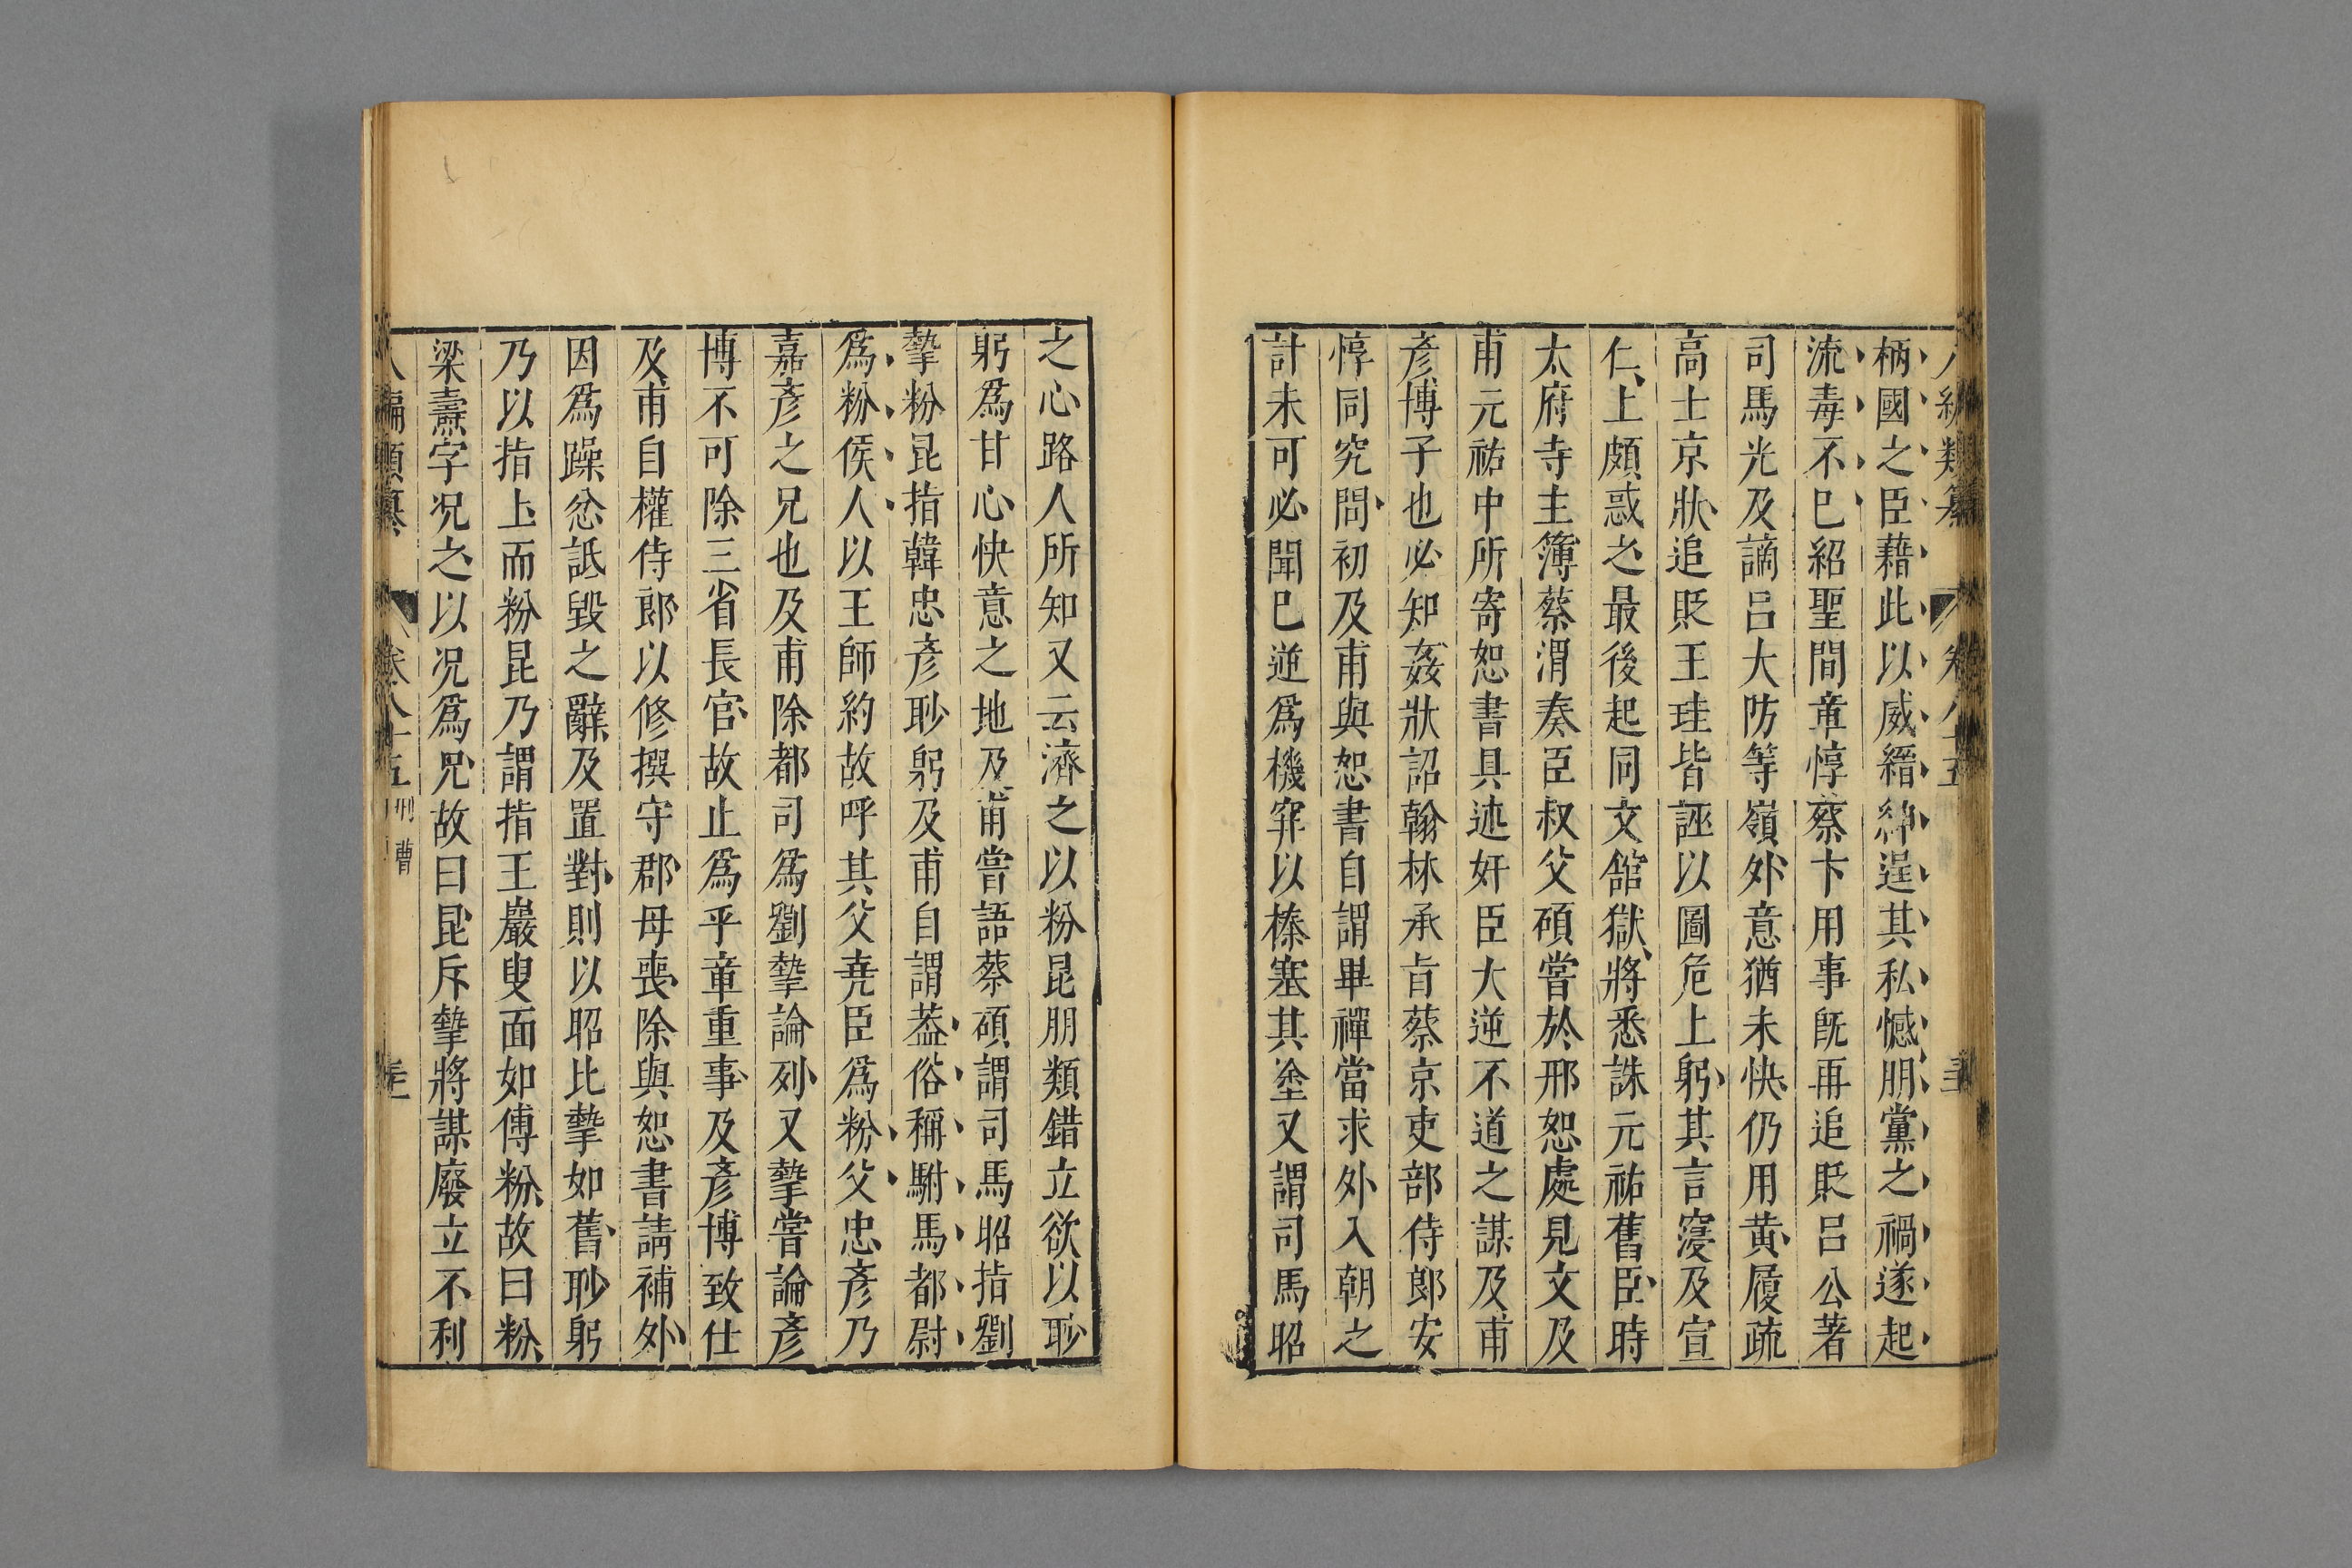 柄國之臣藉此以威縉紳逞其私憾朋黨之禍遂起
流毒不巳紹聖間章惇蔡卞用事旣再追貶呂公著
司馬光及謫呂大防等嶺外意猶未快仍用黃履疏
高士京狀追貶王珪皆誣以圖危上躬其言寖及宣
仁上頗惑之最後起同文館獄將悉誅元祐舊臣時
太府寺主簿蔡渭奏臣叔父碩嘗於邢恕處見文及
甫元祐中所寄恕書具述奸臣大逆不道之謀及甫
彥博子也必知姦狀詔翰林承旨蔡京吏部侍郎安
惇同究問初及甫與恕書自謂畢禫當求外入朝之
計未可必聞巳逆爲機穽以榛塞其塗又謂司馬昭
之心路人所知又云濟之以粉昆朋類錯立欲以眇
躬爲甘心快意之地及甫嘗語蔡碩謂司馬昭指劉
摯粉昆指韓忠彥眇躬及甫自謂葢俗稱駙馬都尉
爲粉侯人以王師約故呼其父堯臣爲粉父忠彥乃
嘉彥之兄也及甫除都司爲劉摯論列又摯嘗論彥
博不可除三省長官故止爲平章重事及彥博致仕
及甫自權侍郎以修撰守郡母喪除與恕書請補外
因爲躁忿詆毀之辭及置對則以昭比摯如舊眇躬
乃以指上而粉昆乃謂指王巖叟面如傅粉故曰粉
梁燾字况之以况爲兄故曰昆斥摯將謀廢立不利
八編類纂 卷八十五 刑曹